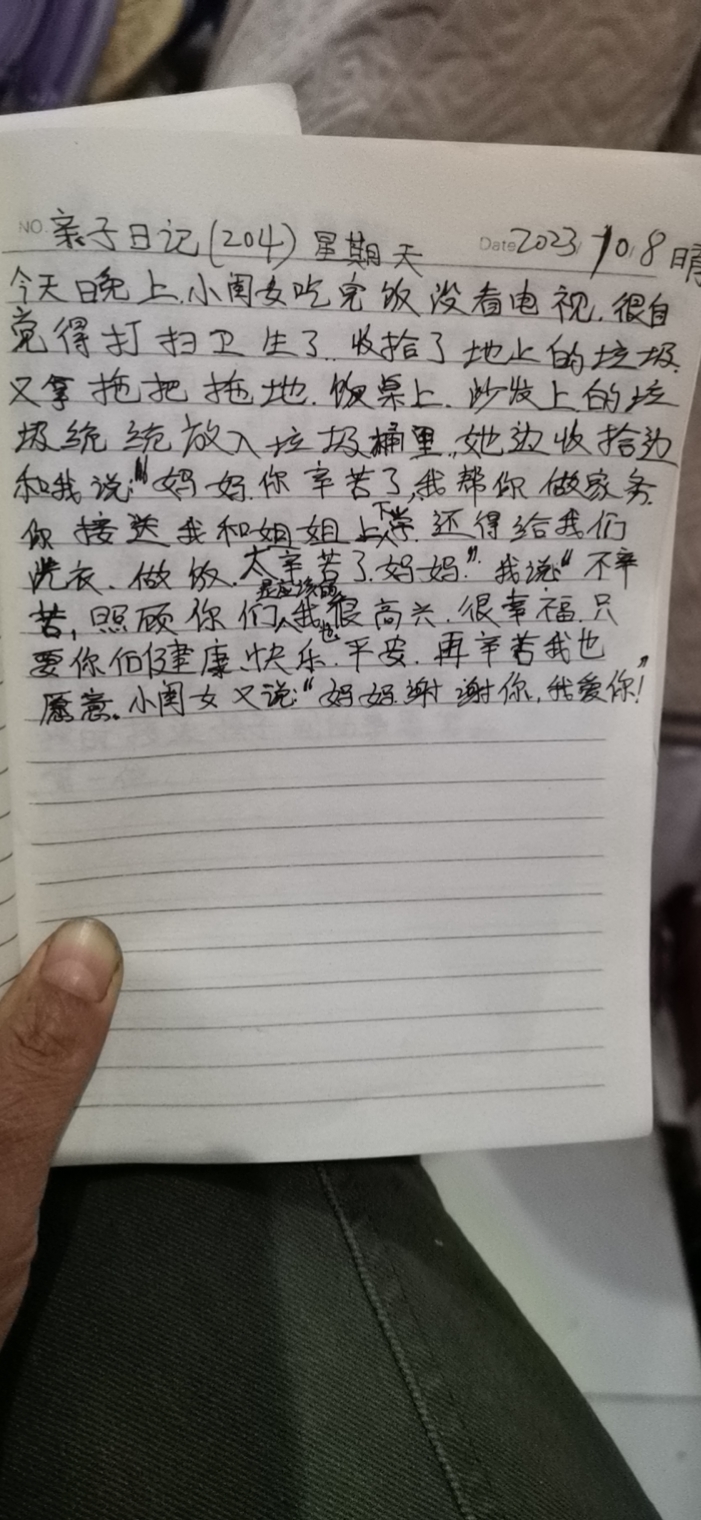 NO. 亲子日记(204) 星期天 Date 2023/10/8 晴
今天晚上.小闺女吃完饭没看电视.很自
觉得打扫卫生了.收拾了地上的垃圾.
又拿拖把拖地.饭桌上.沙发上的垃
圾统统放入垃圾桶里.她边收拾边
和我说:"妈妈.你辛苦了,我帮你做家务.
你接送我和姐姐上下学.还得给我们
洗衣.做饭.太辛苦了.妈妈."我说"不辛
苦,照顾你们是应该的我也很高兴.很幸福.只
要你们健康.快乐.平安.再辛苦我也
愿意。小闺女又说:"妈妈.谢谢你,我爱你!"